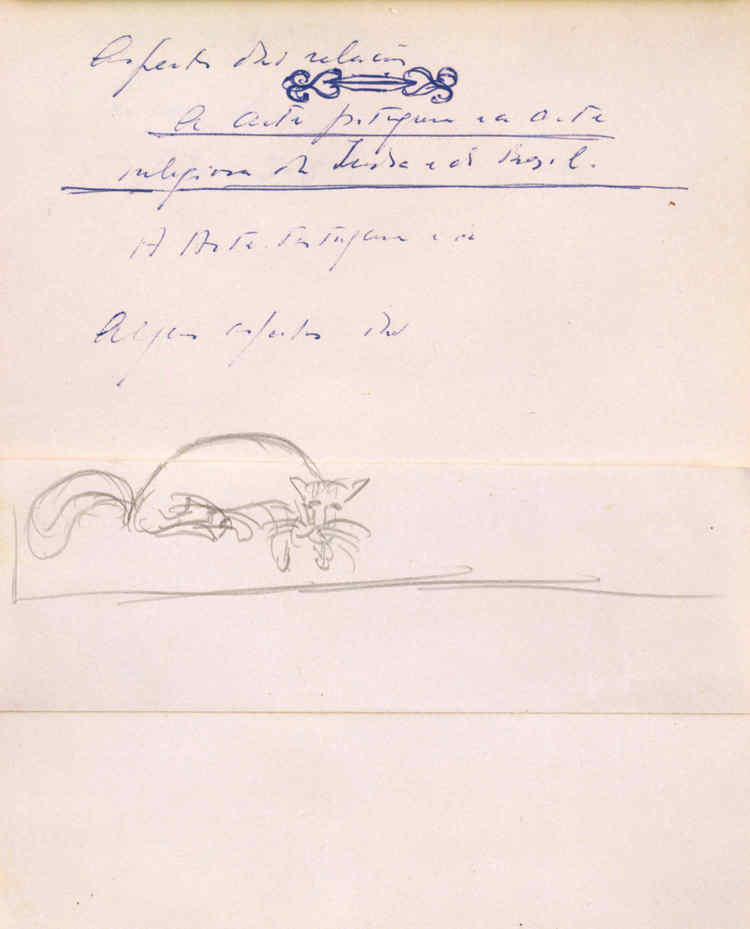 Aspectos das relações
A arte portuguesa e a arte
religiosa da India e do Brasil.
A Arte Portuguesa e a
Alguns aspectos das